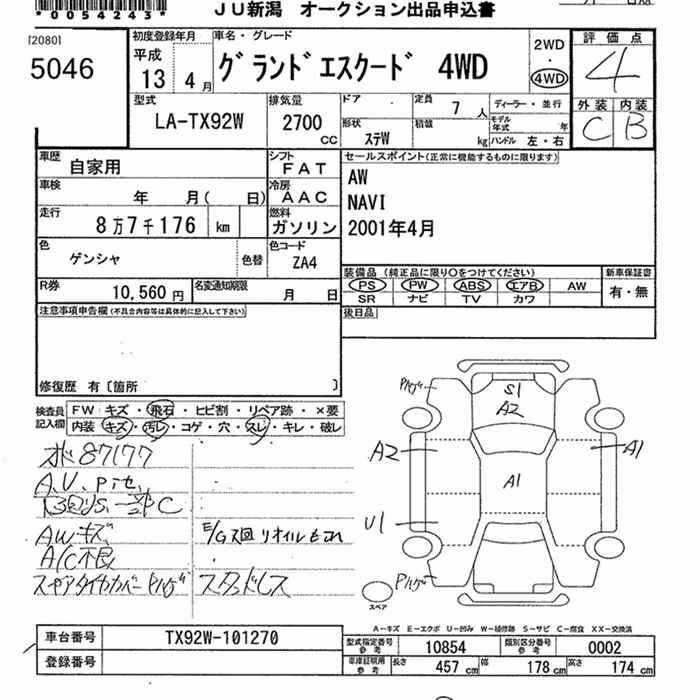 *0054243*
JU新潟 オークション出品申込書
[2080]
5046
初度登録年月
平成
13 4月
車名・グレード
グランドエスクード 4WD
2WD
・
4WD
評価点
4
外装 内装
C B
型式
LA-TX92W
排気量
2700
CC
ドア
形状
ステW
定員 7 人
積載 kg
ディーラー・並行
モデル
年式 年
ハンドル 左・右
車歴
自家用
シフト
FAT
車検
年 月( 日)
冷房
AAC
走行
8万7千176 km
燃料
ガソリン
色
ゲンシャ
色替
色コード
ZA4
セールスポイント(正常に機能するものに限ります)
AW
NAVI
2001年4月
R券
10,560 円
名変通知期限
月 日
装備品(純正品に限り○をつけてください)
PS PW ABS エアB AW
SR ナビ TV カワ
新車保証書
有・無
後日品
注意事項申告欄(不具合内容等は具体的に記入して下さい)
修復歴 有〔箇所 〕
検査員
記入欄
FW キズ・飛石・ヒビ割・リペア跡・×要
内装 キズ・汚レ・コゲ・穴・スレ・キレ・破レ
87177
A,U,
AWキズ
A/C不良
スペアタイヤカバー
スタッドレス
S1
A2
A2
A1
A1
U1
スペア
A-キズ E-エクボ U-凹み W-補修跡 S-サビ C-腐食 XX-交換済
車台番号 TX92W-101270
登録番号
型式指定番号
参考 10854
類別区分番号
参考 0002
車庫証明用
参考 長さ 457 cm 幅 178 cm 高さ 174 cm